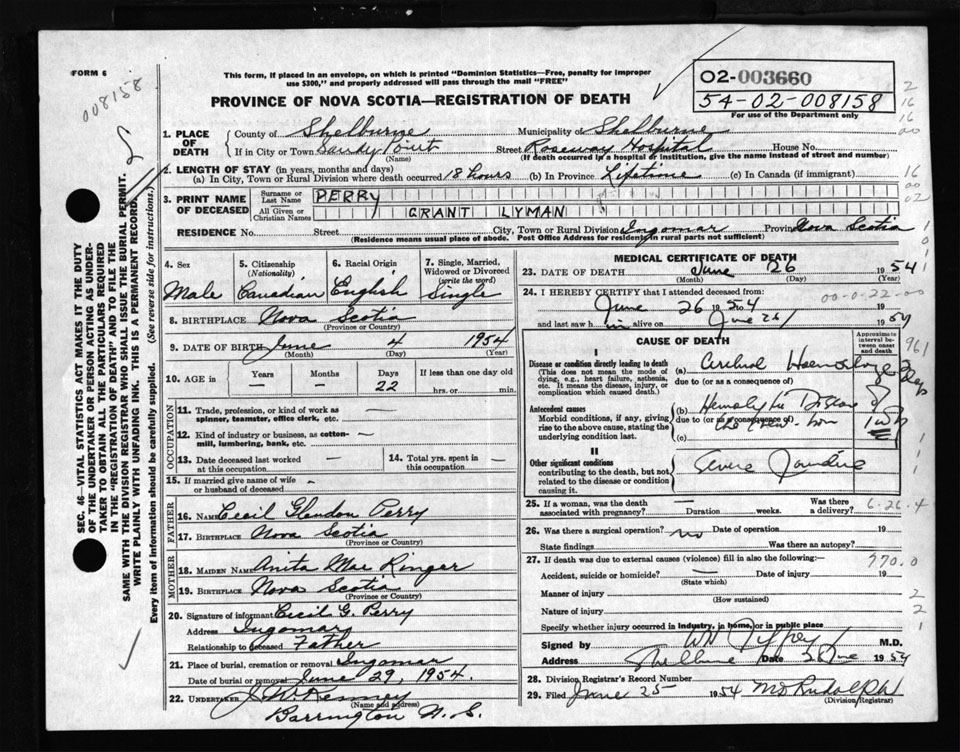 FORM 6
008158
This form, if placed in an envelope, on which is printed "Dominion Statistics—Free, penalty for improper
use $300," and properly addressed will pass through the mail "FREE"
PROVINCE OF NOVA SCOTIA—REGISTRATION OF DEATH
O2-003660
54-02-008158
For use of the Department only
1. PLACE OF DEATH
County of Shelburne Municipality of Shelburne
If in City or Town Sandy Point Street Roseway Hospital House No.
(Name) (If death occurred in a hospital or institution, give the name instead of street and number)
2. LENGTH OF STAY (in years, months and days)
(a) In City, Town or Rural Division where death occurred 18 hours (b) In Province Lifetime (c) In Canada (if immigrant)
3. PRINT NAME OF DECEASED
Surname or Last Name PERRY
All Given or Christian Names GRANT LYMAN
RESIDENCE No. Street City, Town or Rural Division Ingomar Province Nova Scotia
(Residence means usual place of abode. Post Office Address for residents in rural parts not sufficient)
4. Sex
Male
5. Citizenship
(Nationality)
Canadian
6. Racial Origin
English
7. Single, Married,
Widowed or Divorced
(write the word)
Single
8. BIRTHPLACE Nova Scotia
(Province or Country)
9. DATE OF BIRTH June 4 1954
(Month) (Day) (Year)
10. AGE in
Years —
Months —
Days 22
If less than one day old
hrs. or min.
OCCUPATION
11. Trade, profession, or kind of work as
spinner, teamster, office clerk, etc. —
12. Kind of industry or business, as cotton-
mill, lumbering, bank, etc. —
13. Date deceased last worked
at this occupation —
14. Total yrs. spent in
this occupation —
15. If married give name of wife
or husband of deceased —
FATHER
16. NAME Cecil Glendon Perry
17. BIRTHPLACE Nova Scotia
(Province or Country)
MOTHER
18. MAIDEN NAME Anita Mae Ringer
19. BIRTHPLACE Nova Scotia
(Province or Country)
20. Signature of informant Cecil G. Perry
Address Ingomar
Relationship to deceased Father
21. Place of burial, cremation or removal Ingomar
Date of burial or removal June 29, 1954.
22. UNDERTAKER J. McKenney
(Name and address)
Barrington N. S.
MEDICAL CERTIFICATE OF DEATH
23. DATE OF DEATH June 26 1954
(Month) (Day)
24. I HEREBY CERTIFY that I attended deceased from:
June 26 1954 to
00-0-22-00
and last saw him alive on June 26 1954
CAUSE OF DEATH
Approximate
interval between
onset
and death
961
I
Disease or condition directly leading to death
(This does not mean the mode of
dying, e.g., heart failure, asthenia,
etc. It means the disease, injury, or
complication which caused death.)
(a) Cerebral Haemorrhage 2 days
due to (or as a consequence of)
Antecedent causes
Morbid conditions, if any, giving
rise to the above cause, stating the
underlying condition last.
(b) Hemolytic Disease
due to (or as a consequence of)
(c)
II
Other significant conditions
contributing to the death, but not
related to the disease or condition
causing it.
Severe Jaundice
25. If a woman, was the death
associated with pregnancy? — Duration weeks. Was there
a delivery?
6-26-4
26. Was there a surgical operation? no Date of operation 19
State findings Was there an autopsy?
27. If death was due to external causes (violence) fill in also the following:—
770.0
Accident, suicide or homicide? — Date of injury 19
(State which)
Manner of injury
(How sustained)
Nature of injury
Specify whether injury occurred in industry, in home, or in public place
Signed by M.D.
Address Shelburne Date 1954
28. Division Registrar's Record Number
29. Filed June 25 1954 M Rudolph
(Division Registrar)
SEC. 46—VITAL STATISTICS ACT MAKES IT THE DUTY
OF THE UNDERTAKER OR PERSON ACTING AS UNDER-
TAKER TO OBTAIN ALL THE PARTICULARS REQUIRED
IN THE "REGISTRATION OF DEATH" AND TO FILE THE
SAME WITH THE DIVISION REGISTRAR WHO SHALL ISSUE THE BURIAL PERMIT.
WRITE PLAINLY WITH UNFADING INK. THIS IS A PERMANENT RECORD.
Every item of Information should be carefully supplied. (See reverse side for instructions.)